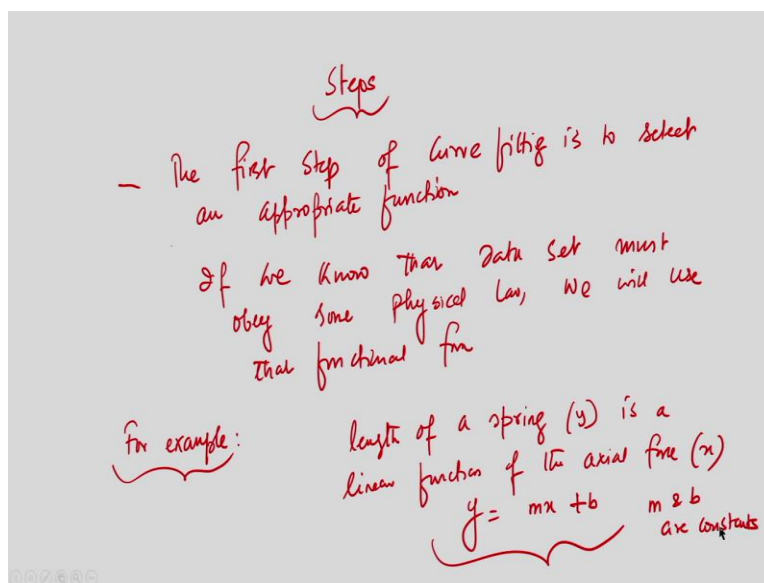 Steps
— The first step of curve fitting is to select
an appropriate function
If we know that data set must
obey some physical law, we will use
that functional form
For example:
length of a spring (y) is a
linear function of the axial force (x)
y = mx + b m & b
are constants